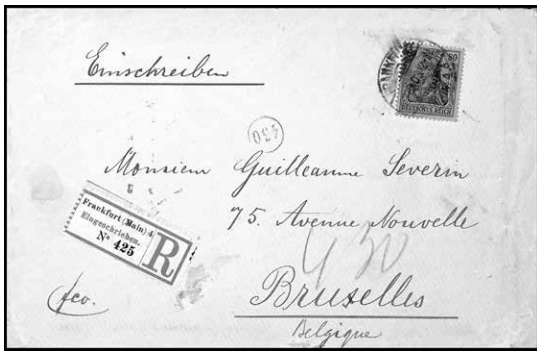 Einschreiben
80
DEUTSCHES REICH
430
Monsieur Guilleaume Severin
75. Avenue Nouvelle
430
Frankfurt (Main) 4
Eingeschrieben.
No 425
R
fco.
Bruxelles
Belgique